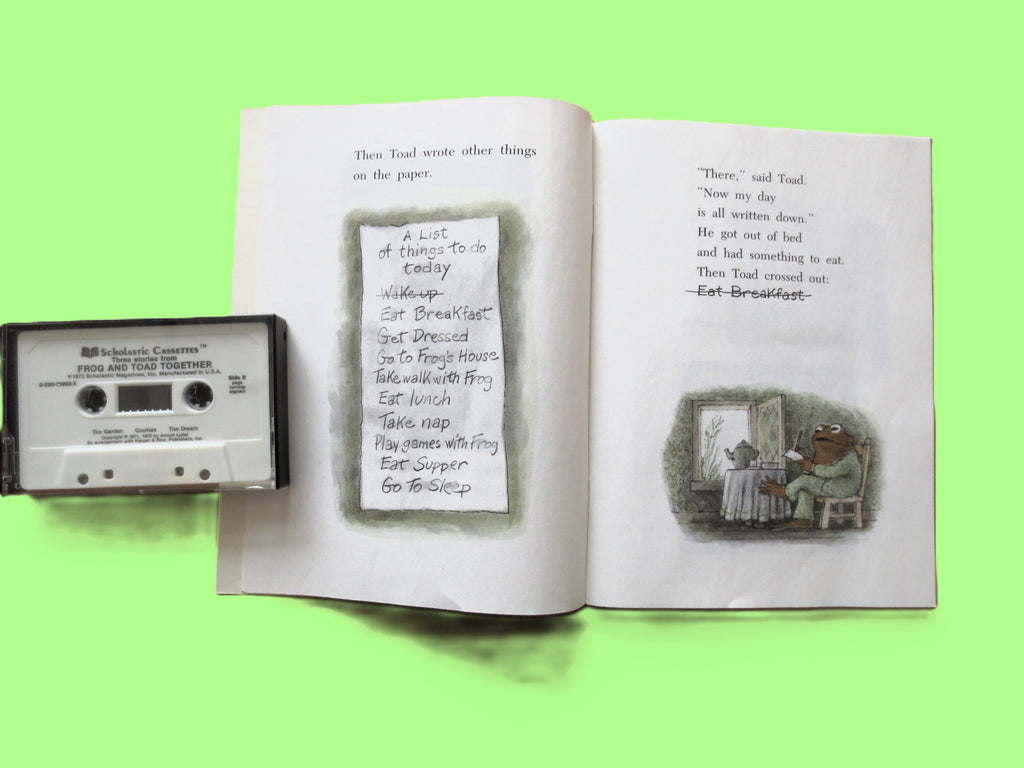 Scholastic Cassettes™
Three stories from
FROG AND TOAD TOGETHER
©1973 Scholastic Magazines, Inc. Manufactured in U.S.A.
Side B
page
turning
signals
The Garden Cookies The Dream
Copyright © 1971, 1972 by Arnold Lobel
By arrangement with Harper & Row, Publishers, Inc.
Then Toad wrote other things
on the paper.
A List
of things to do
today
Wake up
Eat Breakfast
Get Dressed
Go to Frog's House
Take walk with Frog
Eat lunch
Take nap
Play games with Frog
Eat Supper
Go To Sleep
"There," said Toad.
"Now my day
is all written down."
He got out of bed
and had something to eat.
Then Toad crossed out:
Eat Breakfast